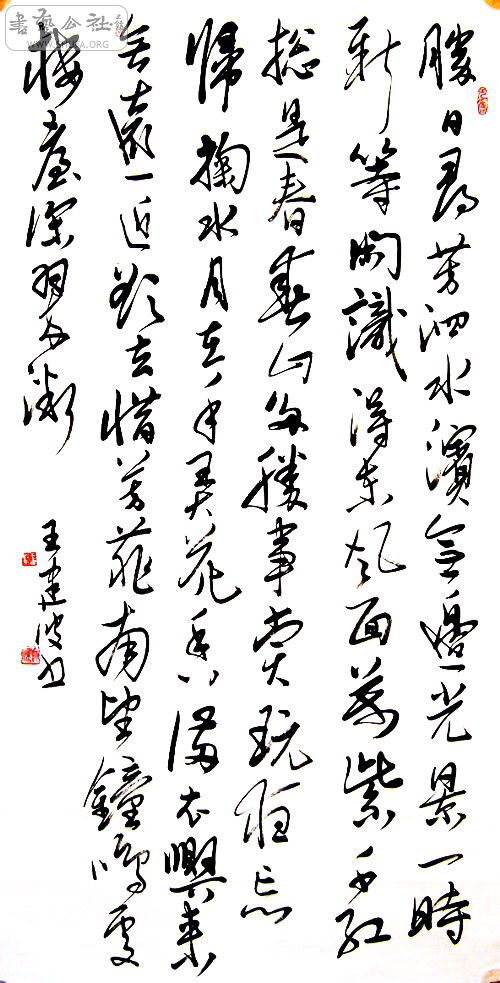 勝日尋芳泗水濱無邊光景一時
新等閑識得東風面萬紫千紅
總是春春山多勝事賞玩夜忘
歸掬水月在手弄花香滿衣興來
無遠近欲去惜芳菲南望鐘鳴處
樓臺深翠微
王建波书
書藝公社